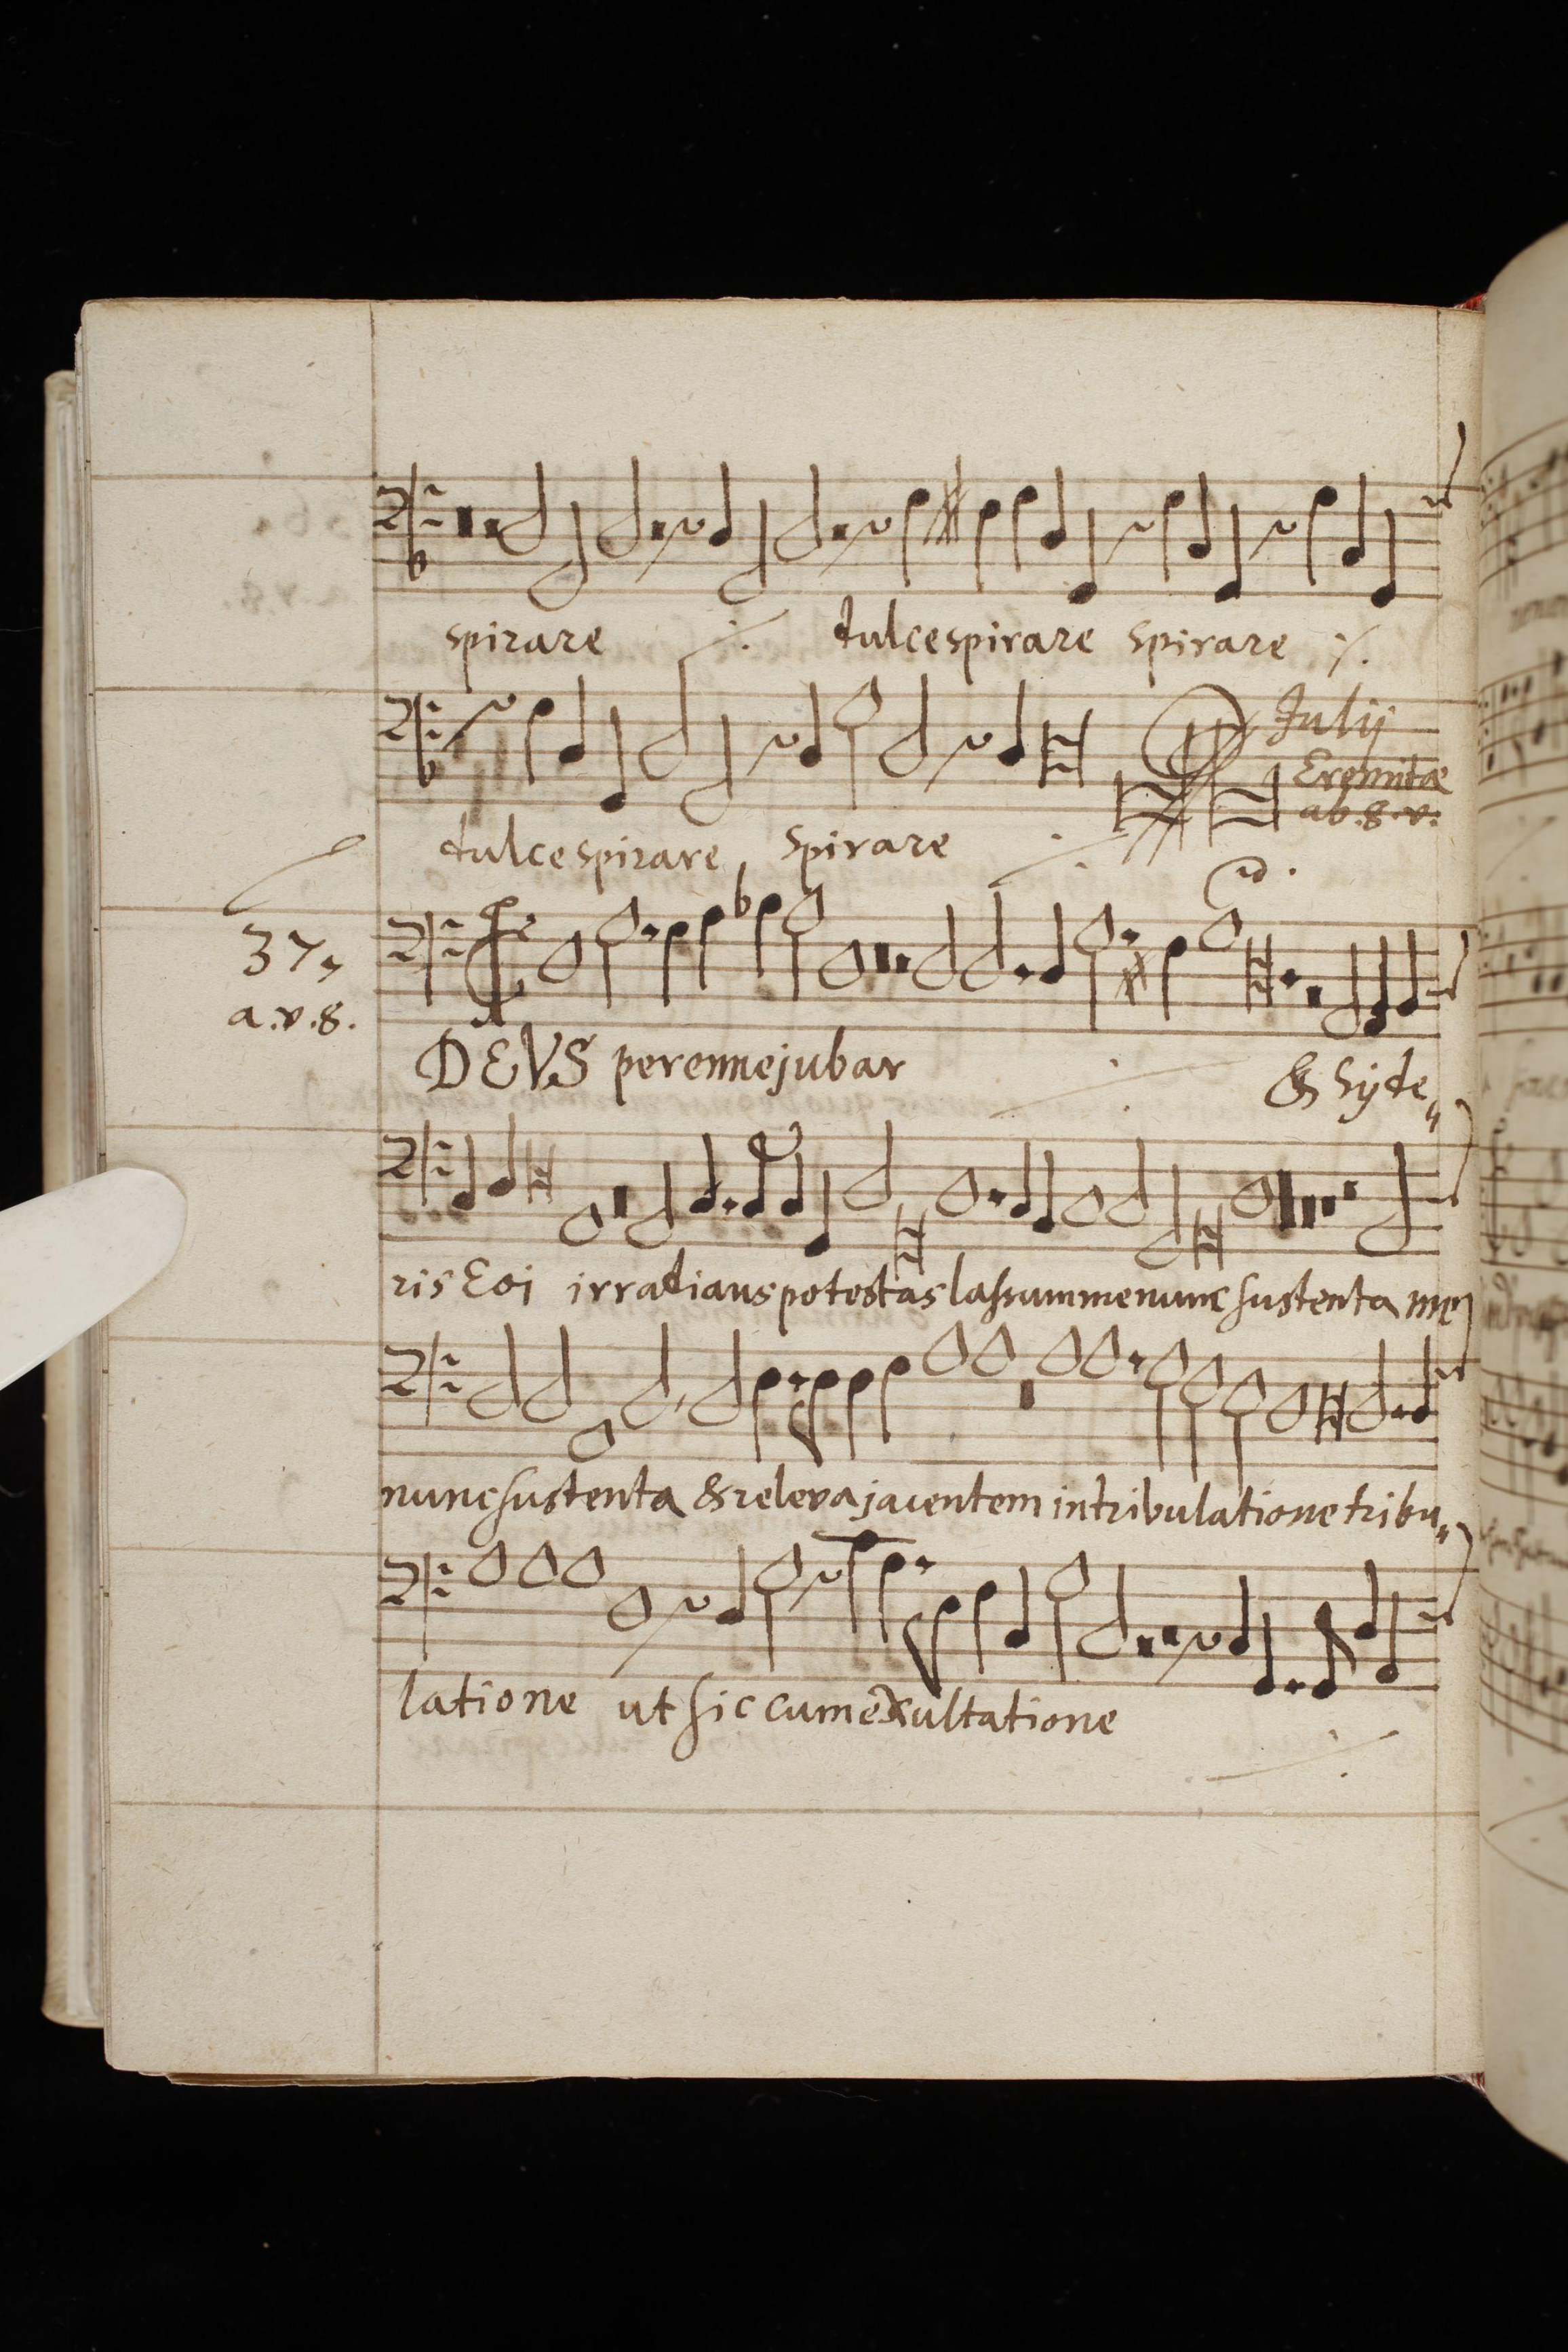 spirare ·/. dulce spirare spirare ·/.
Julij
Eremitæ
ab. 8. v.
dulce spirare spirare ·/.
37.
a. v. 8.
DEVS perenne jubar ·/. & syde„
ris Eoi irradians potestas lassum me nunc sustenta me
nunc sustenta & releva jacentem in tribulatione tribu„
latione ut sic cum exultatione ·/.